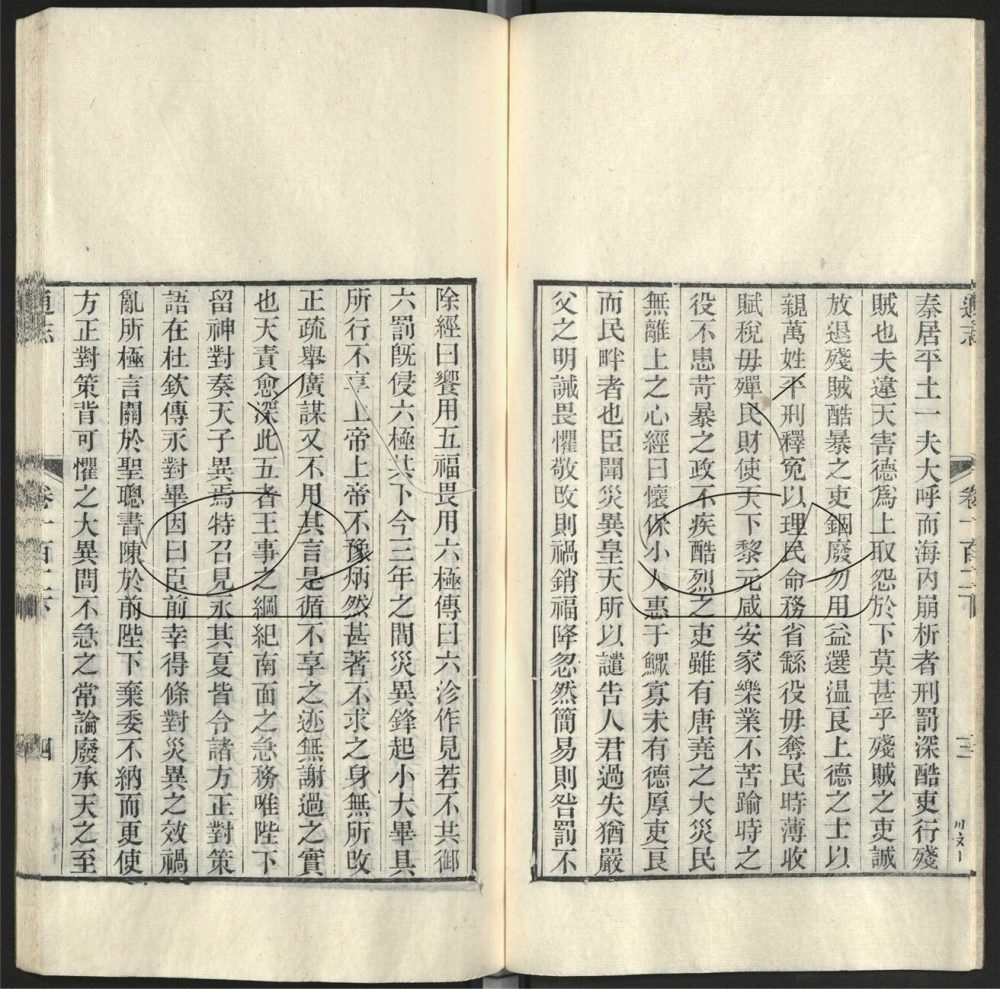 秦居平土一夫大呼而海內崩析者刑罰深酷吏行殘
賊也夫違天害德爲上取怨於下莫甚乎殘賊之吏誠
放退殘賊酷暴之吏錮廢勿用益選溫良上德之士以
親萬姓平刑釋冤以理民命務省繇役毋奪民時薄收
賦稅毋殫民財使天下黎元咸安家樂業不苦踰時之
役不患苛暴之政不疾酷烈之吏雖有唐堯之大災民
無離上之心經曰懷保小人惠于鰥寡未有德厚吏良
而民畔者也臣聞災異皇天所以譴告人君過失猶嚴
父之明誡畏懼敬攺則禍銷福降忽然簡易則咎罰不
除經曰饗用五福畏用六極傳曰六沴作見若不共御
六罰旣侵六極其下今三年之間災異鋒起小大畢具
所行不享上帝上帝不豫炳然甚著不求之身無所攺
正疏舉廣謀又不用其言是循不享之迹無謝過之實
也天責愈深此五者王事之綱紀南面之急務唯陛下
留神對奏天子異焉特召見永其夏皆令諸方正對策
語在杜欽傳永對畢因曰臣前幸得條對災異之效禍
亂所極言關於聖聰書陳於前陛下棄委不納而更使
方正對策背可懼之大異問不急之常論廢承天之至
通志
四